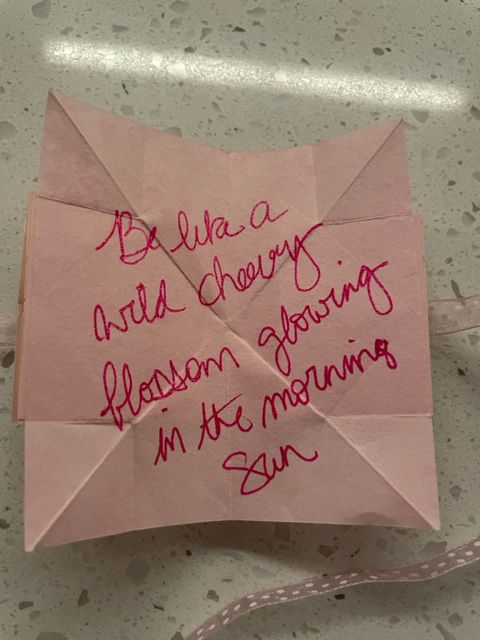 Be like a
wild cheery
blossom glowing
in the morning
Sun